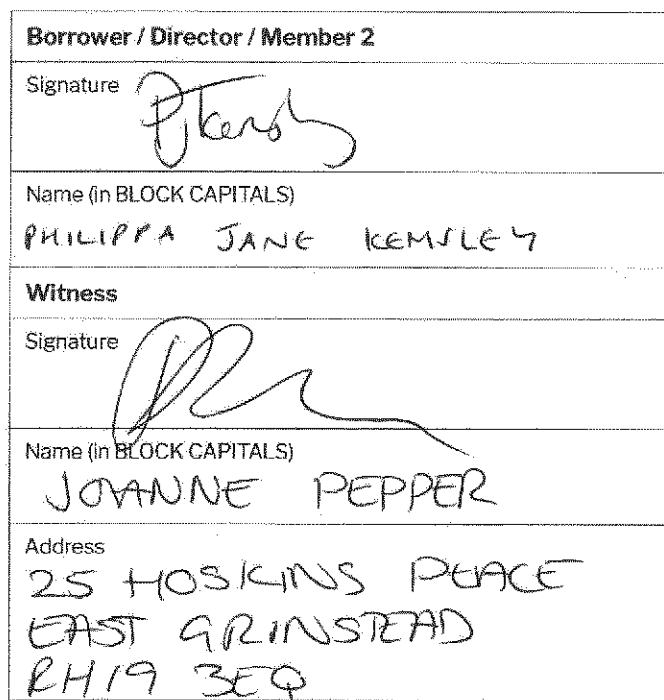 Borrower / Director / Member 2
Signature
PJKemsley
Name (in BLOCK CAPITALS)
PHILIPPA JANE KEMSLEY
Witness
Signature
Name (in BLOCK CAPITALS)
JOANNE PEPPER
Address
25 HOSKINS PLACE
EAST GRINSTEAD
RH19 3EQ